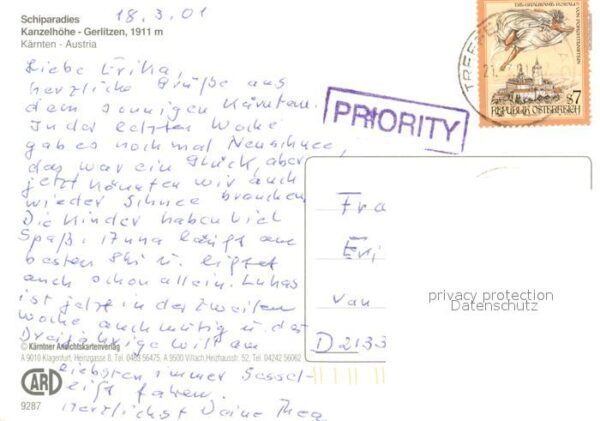 18.3.01
Schiparadies
Kanzelhöhe - Gerlitzen, 1911 m
Kärnten - Austria
Liebe Erika,
herzliche Grüße aus
dem sonnigen Kärnten.
In der letzten Woche
gab es nochmal Neuschnee,
das war ein Glück, aber
jetzt könnten wir auch
wieder Schnee brauchen
Die Kinder haben viel
Spaß. läuft am
besten Ski u. liftet
auch schon allein. Lukas
ist jetzt in der zweiten
Woche auch mutig u. das
Dreijährige will am
liebsten immer Sessel-
lift fahren.
Herzlichst Deine Thea
© Kärntner Ansichtskartenverlag
A 9010 Klagenfurt, Heinzgasse 8, Tel. 0463 56475, A 9500 Villach, Heizhausstr. 52, Tel. 04242 56062
CARD
9287
PRIORITY
TREFFEN
21.
S7
REPUBLIK ÖSTERREICH
Fra
Eri
van
D 2133
privacy protection
Datenschutz